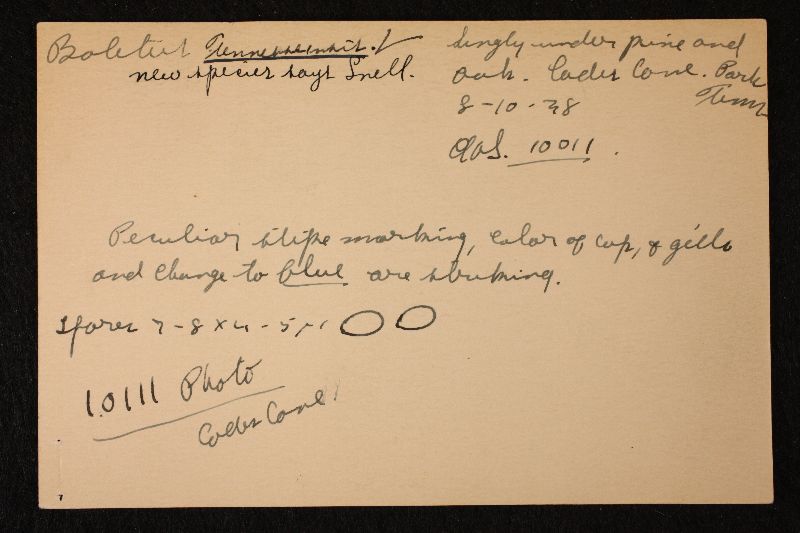 Boletus Tennesseensis.
new species says Snell.
Singly under pine and
oak. Cades Cove. Park
Tenn
8-10-38
LOS. 10011.
Peculiar stipe marking, color of cap, & gills
and change to blue are striking.
Spores 7-8 x 4-5 μ
10111 Photo
Cades Cove